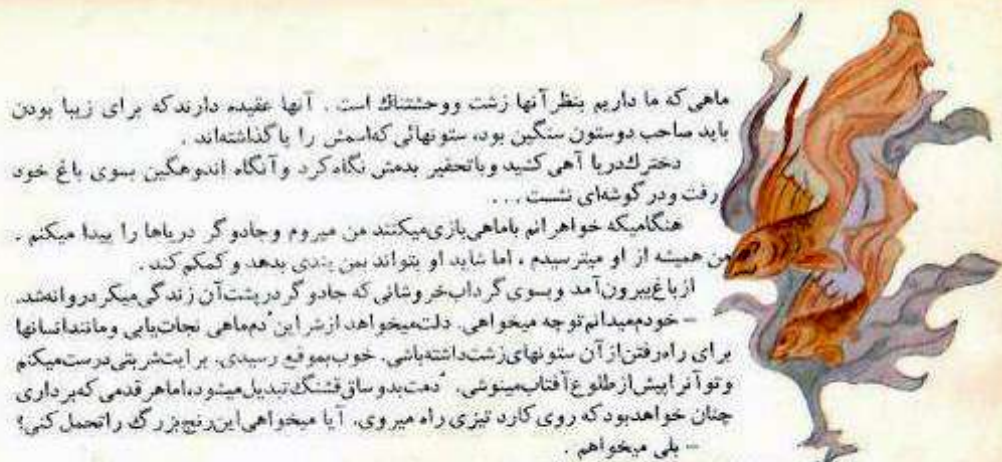 ماهی‌که ما داریم بنظر آنها زشت ووحشتناك است . آنها عقیده دارندکه برای زیبا بودن
باید صاحب دوستون سنگین بود، ستونهائی که‌اسمش را پا گذاشته‌اند .
دخترك‌دریا آهی کشید وباتحقیر بدمش نگاه‌کرد وآنگاه اندوهگین بسوی باغ خود
رفت ودر گوشه‌ای نشست ...
هنگامیکه خواهرانم باماهی‌بازی‌میکنند من میروم وجادوگر دریاها را پیدا میکنم .
من همیشه از او میترسیدم ، اما شاید او بتواند بمن پندی بدهد و کمکم کند .
ازباغ‌بیرون‌آمد وبسوی گرداب‌خروشانی که جادوگر درپشت‌آن زندگی‌میکرد روانه‌شد.
– خودم‌میدانم‌توچه میخواهی. دلت‌میخواهد ازشر این ُدم‌ماهی نجات‌یابی ومانندانسانها
برای راه‌رفتن‌ازآن ستونهای‌زشت‌داشته‌باشی. خوب‌بموقع رسیدی. برایت‌شربتی‌درست‌میکنم
وتوآنراپیش‌ازطلوع‌آفتاب‌مینوشی. ُدمت‌بدوساق‌قشنگ‌تبدیل‌میشود،اماهرقدمی که‌برداری
چنان خواهدبودکه روی‌کارد تیزی راه میروی. آیا میخواهی‌این‌رنج‌بزرگ راتحمل کنی؟
– بلی میخواهم .